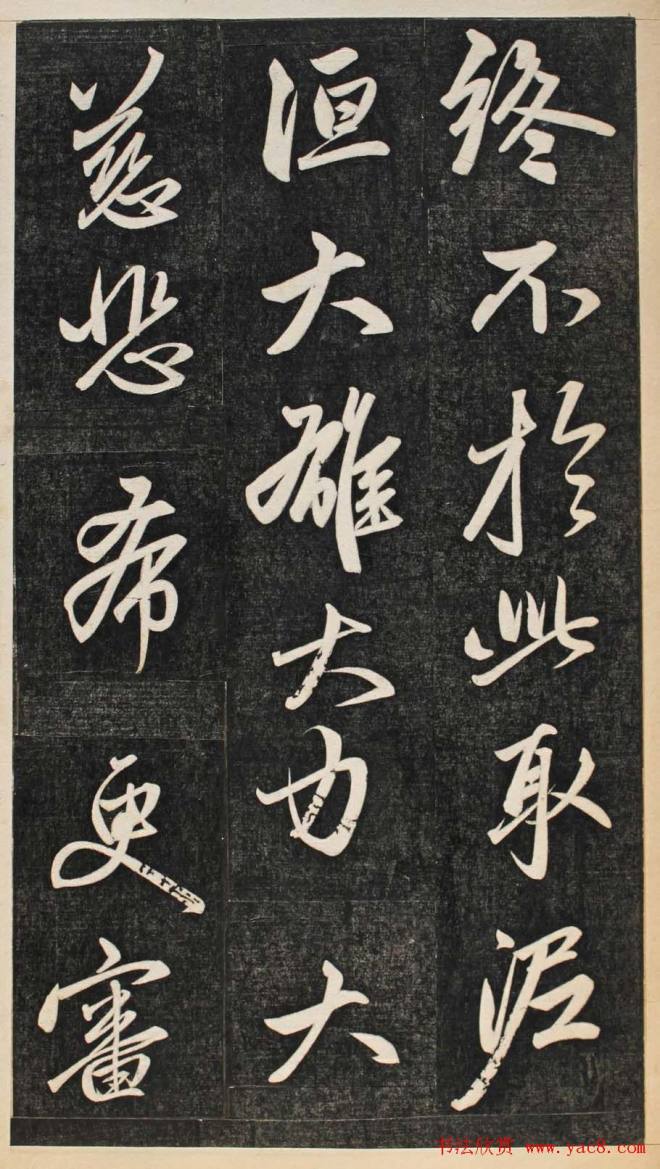 終不於此取泥
洹大雄大力大
慈悲希更審
书法欣赏 www.yac8.com